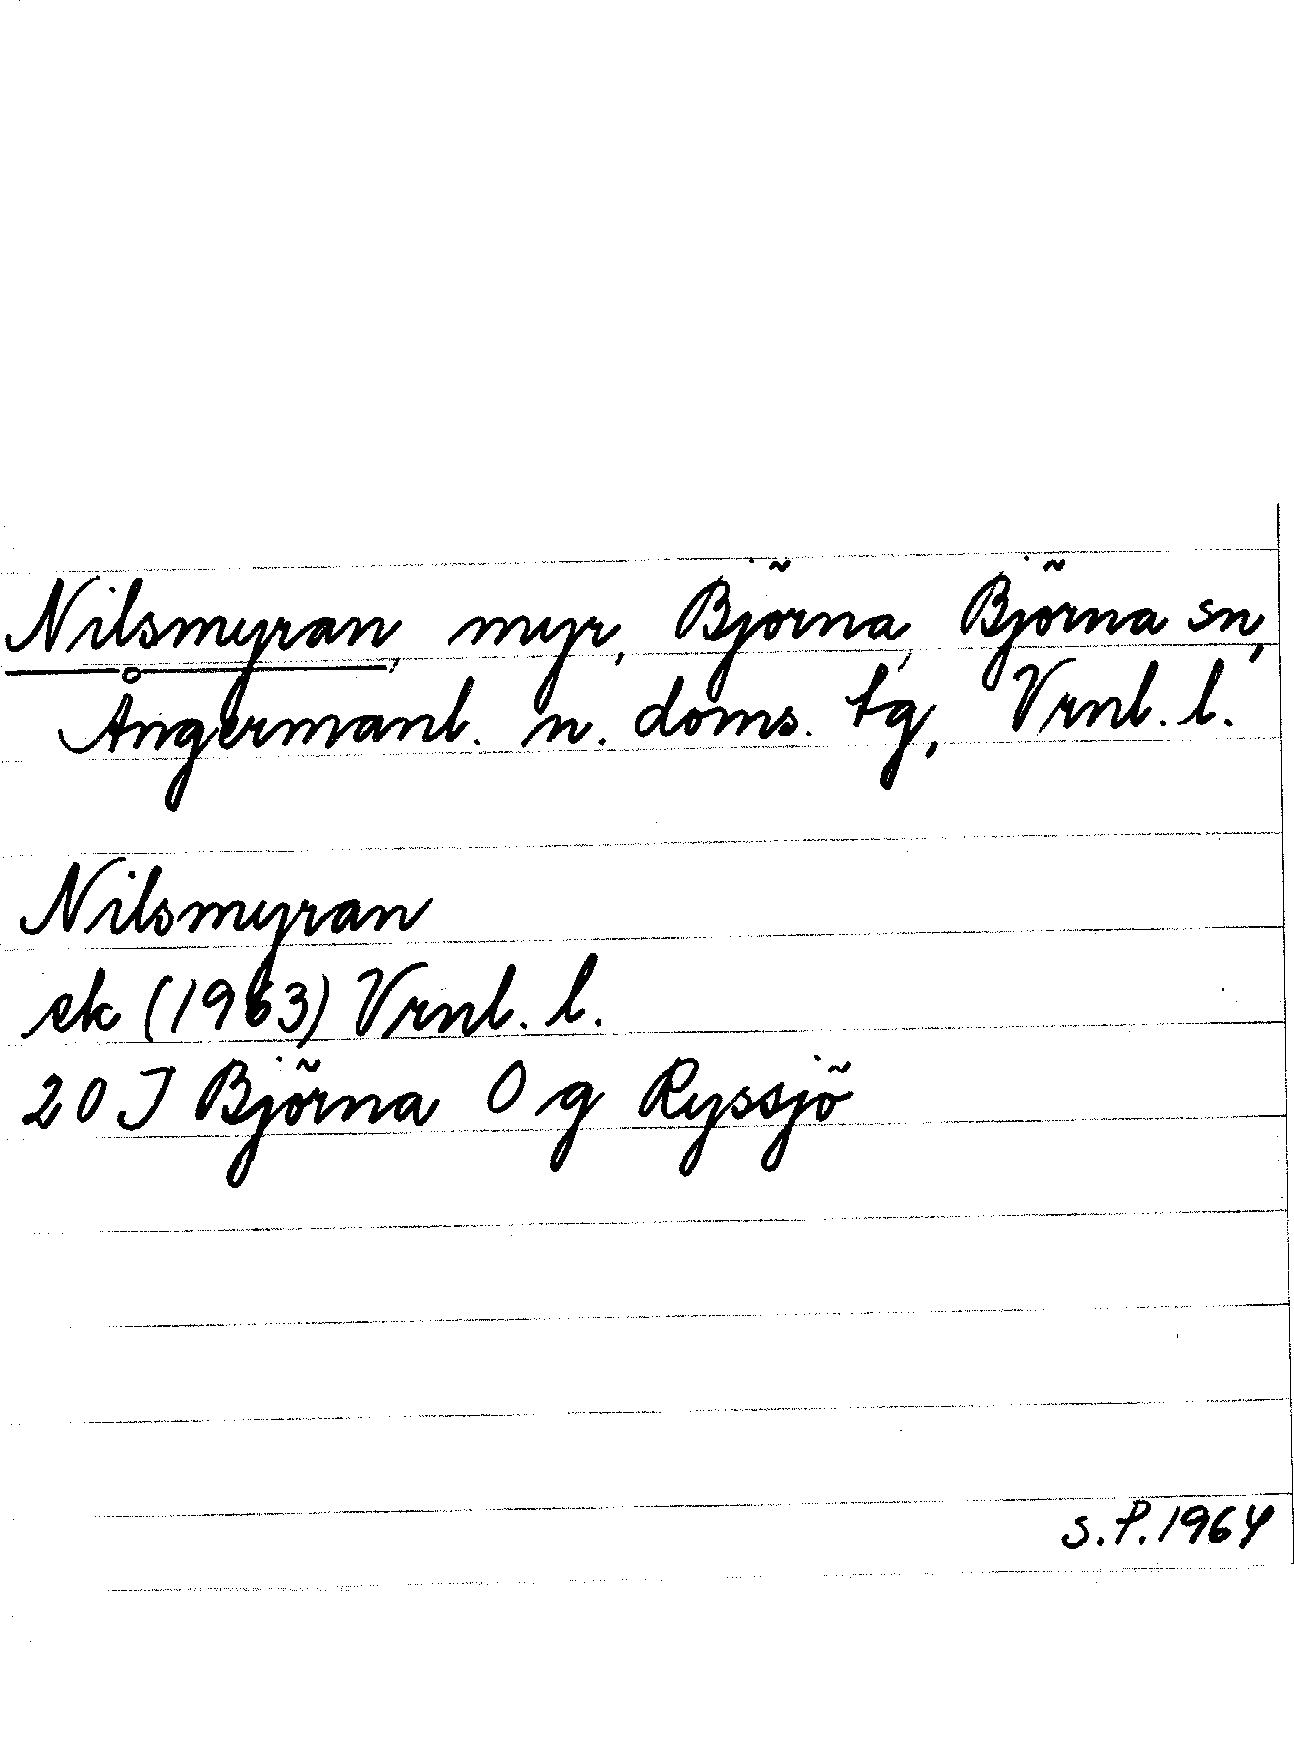 Nilsmyran, myr, Björna, Björna sn,
Ångermanl. n. doms. tg, Vrnl. l.
Nilsmyran
ek (1963) Vrnl. l.
20 J Björna O g Ryssjö
S.P. 1964